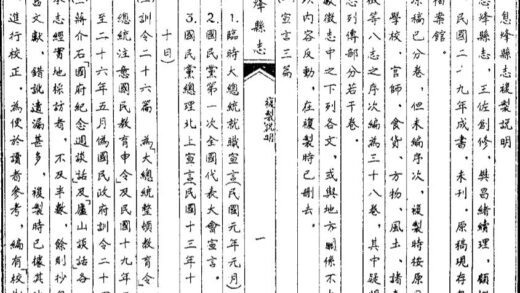 息烽縣志複製說明
息烽縣志,王佐創修,樊昌緒續理,顧
民國二·九年成書,未刊。原稿現存
檔案館。
原稿已分卷,但未編序次,複製時按原
學校、官師、食貨、方物、風土、諸
徵等八志之序次編為三十八卷,其中
志列傳部分若干卷。
獻徵志中之下列各文,或與地方關係不
以內容反動,在複製時已刪去。
宣言三篇
烽縣志 複製說明 一
1.臨時大總統就職宣言(民國元年元月)
2.國民黨第一次全國代表大會宣言。
3.國民黨總理北上宣言(民國十三年十
十日)
訓令二十六篇 為「大總統整頓教育令」
總統注意國民教育申令及民國十九年
至二十六年五月偽國民政府訓令二十
蔣介石「國府紀念週談話」及「廬山談話」各
本志經實地採訪者,不及半數,餘則抄
舊文獻,錯訛遺漏甚多,複製時已據其
進行校正。為便於讀者參考,編有「校